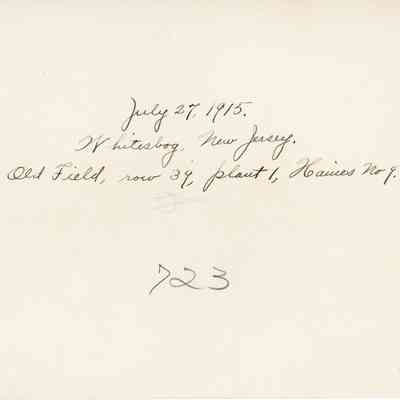 July 27, 1915.
Whitesbog, New Jersey.
Old Field, row 39, plant 1, Haines No 9.
723